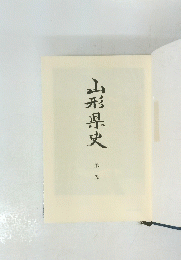 山形県史